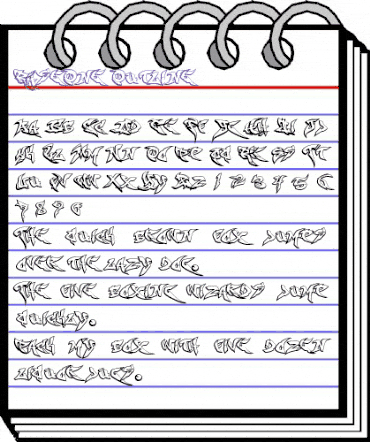 RASEONE OUTLINE
AA BB CC DD EE FF GG HH II JJ
KK LL MM NN OO PP QQ RR SS TT
UU VV WW XX YY ZZ 1 2 3 4 5 6
7 8 9 0
THE QUICK BROWN FOX JUMPS
OVER THE LAZY DOG.
THE FIVE BOXING WIZARDS JUMP
QUICKLY.
PACK MY BOX WITH FIVE DOZEN
LIQUOR JUGS.